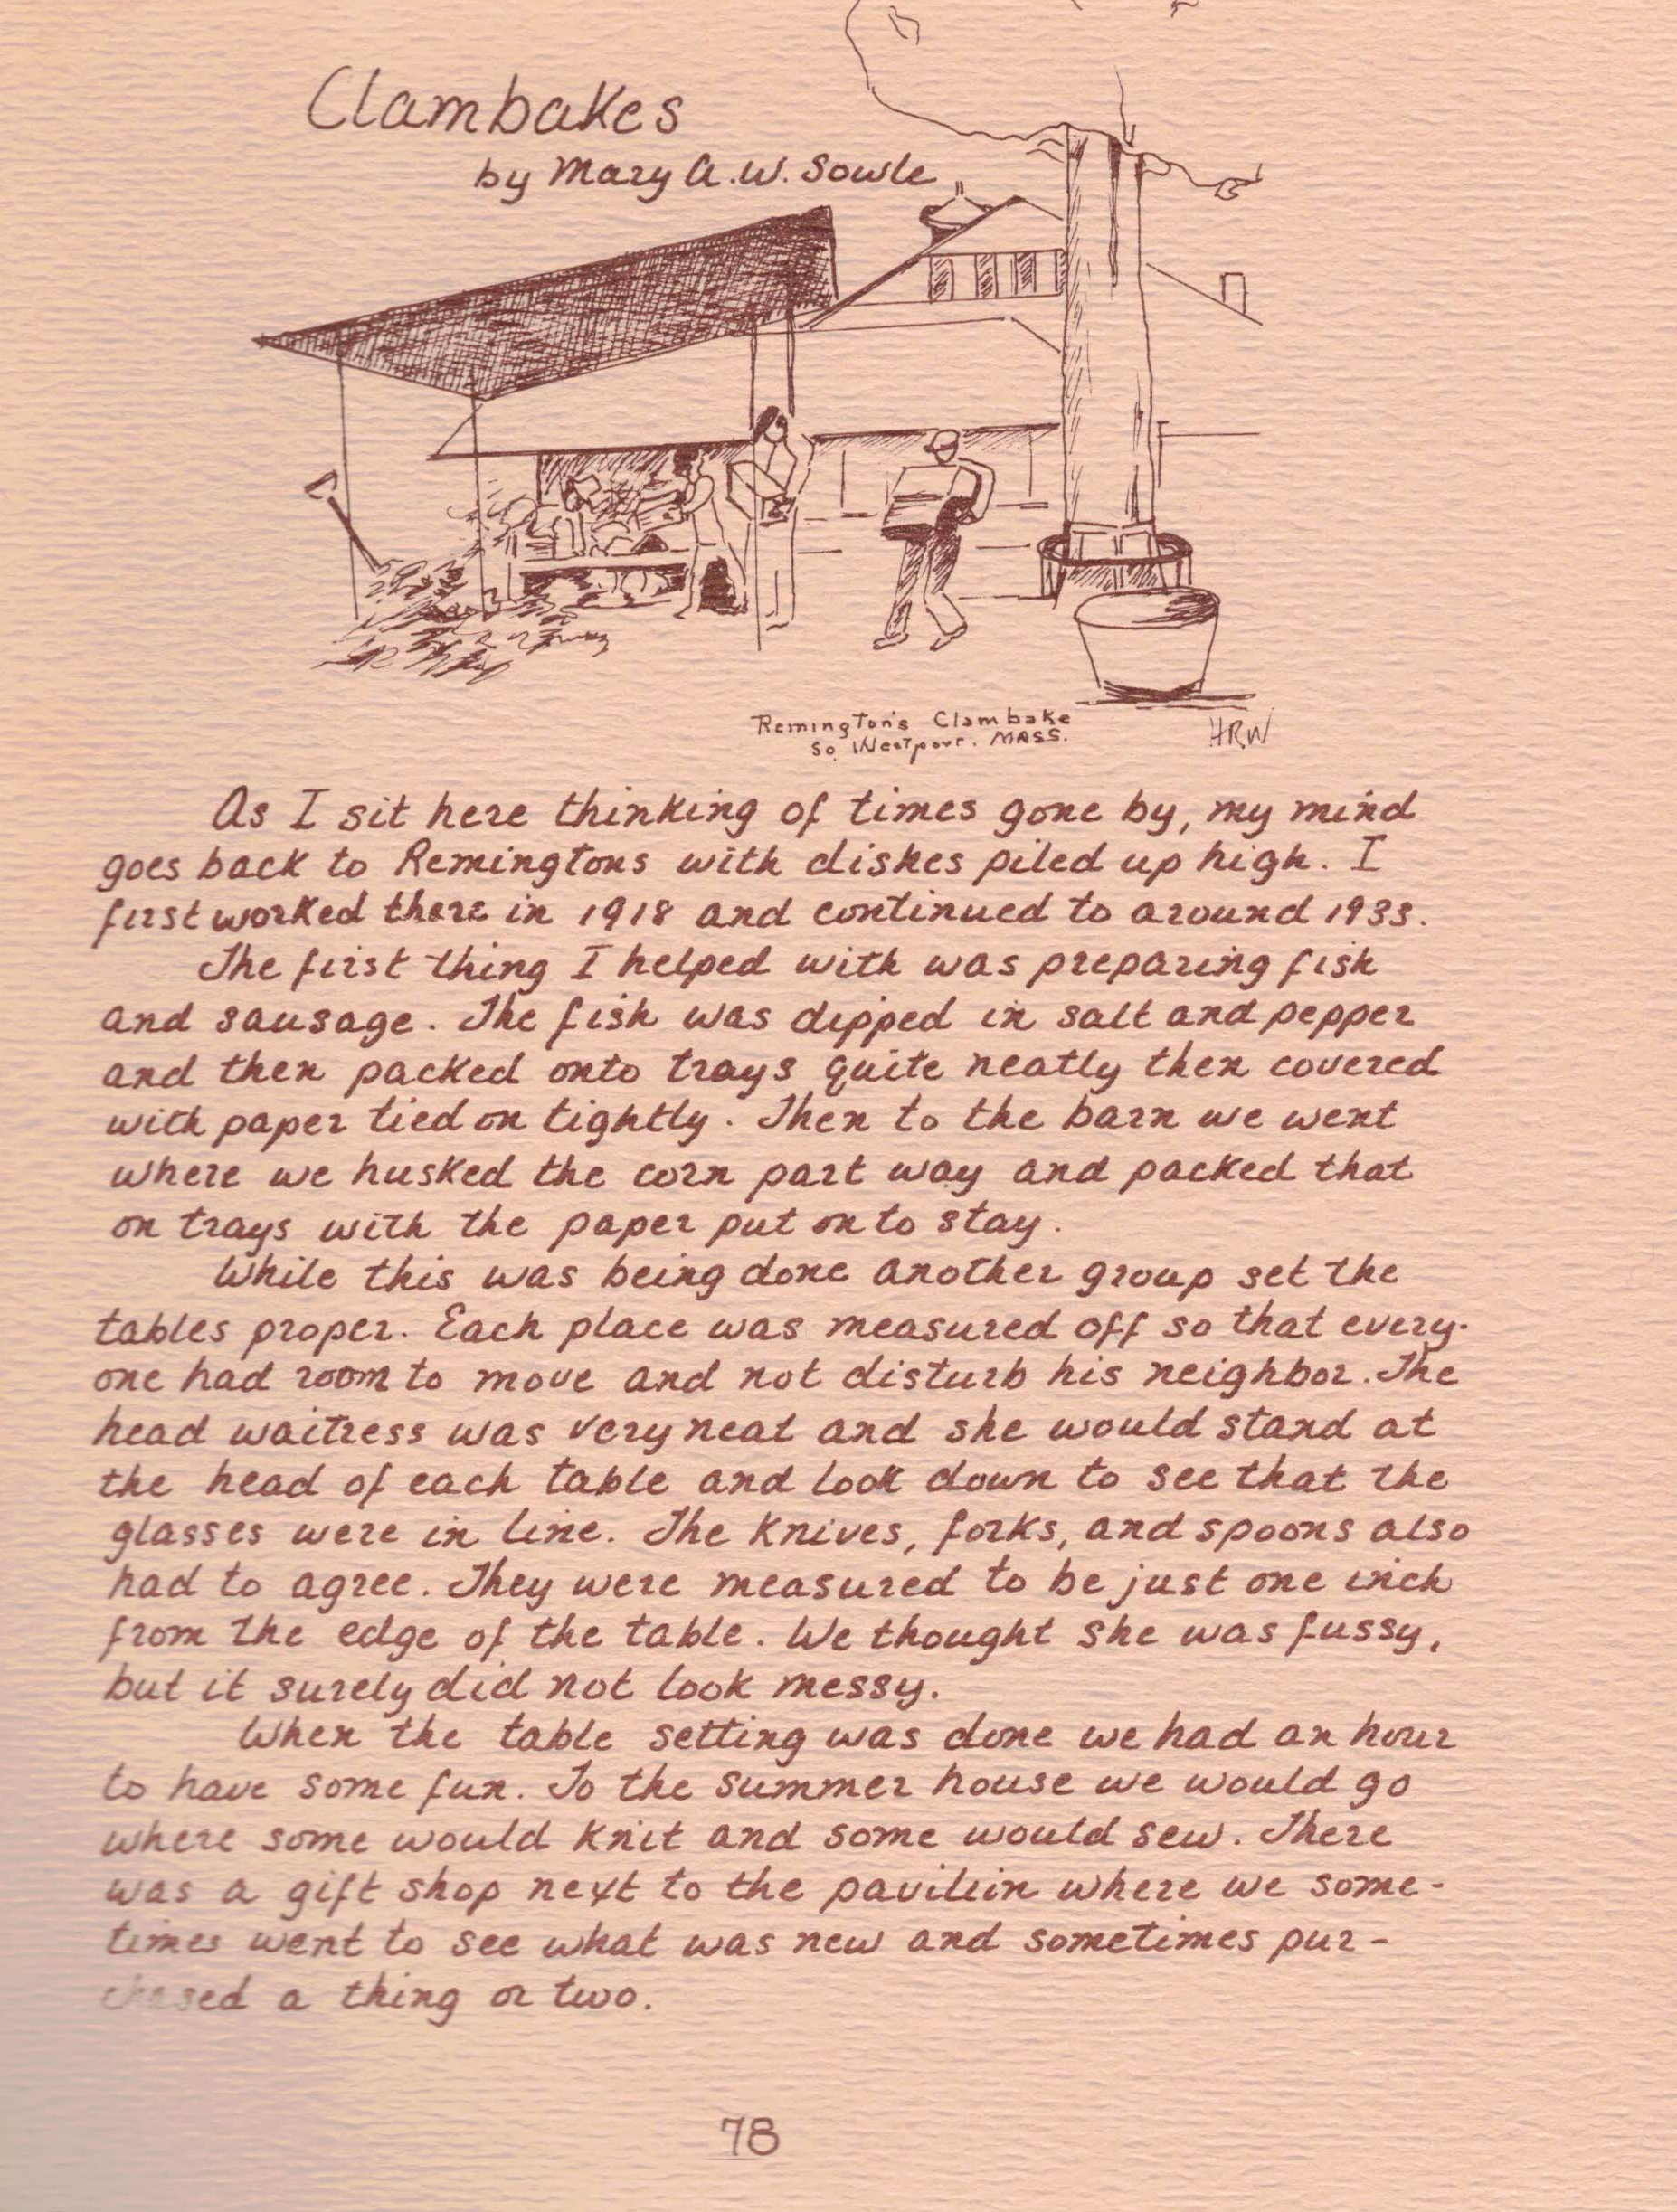 Clambakes
by Mary A.W. Sowle
Remington's Clambake
So. Westport. MASS.
HRW
As I sit here thinking of times gone by, my mind
goes back to Remingtons with dishes piled up high. I
first worked there in 1918 and continued to around 1933.
The first thing I helped with was preparing fish
and sausage. The fish was dipped in salt and pepper
and then packed onto trays quite neatly then covered
with paper tied on tightly. Then to the barn we went
where we husked the corn part way and packed that
on trays with the paper put on to stay.
While this was being done another group set the
tables proper. Each place was measured off so that every-
one had room to move and not disturb his neighbor. The
head waitress was very neat and she would stand at
the head of each table and look down to see that the
glasses were in line. The knives, forks, and spoons also
had to agree. They were measured to be just one inch
from the edge of the table. We thought she was fussy,
but it surely did not look messy.
When the table setting was done we had an hour
to have some fun. To the summer house we would go
where some would knit and some would sew. There
was a gift shop next to the pavilion where we some-
times went to see what was new and sometimes pur-
chased a thing or two.
78